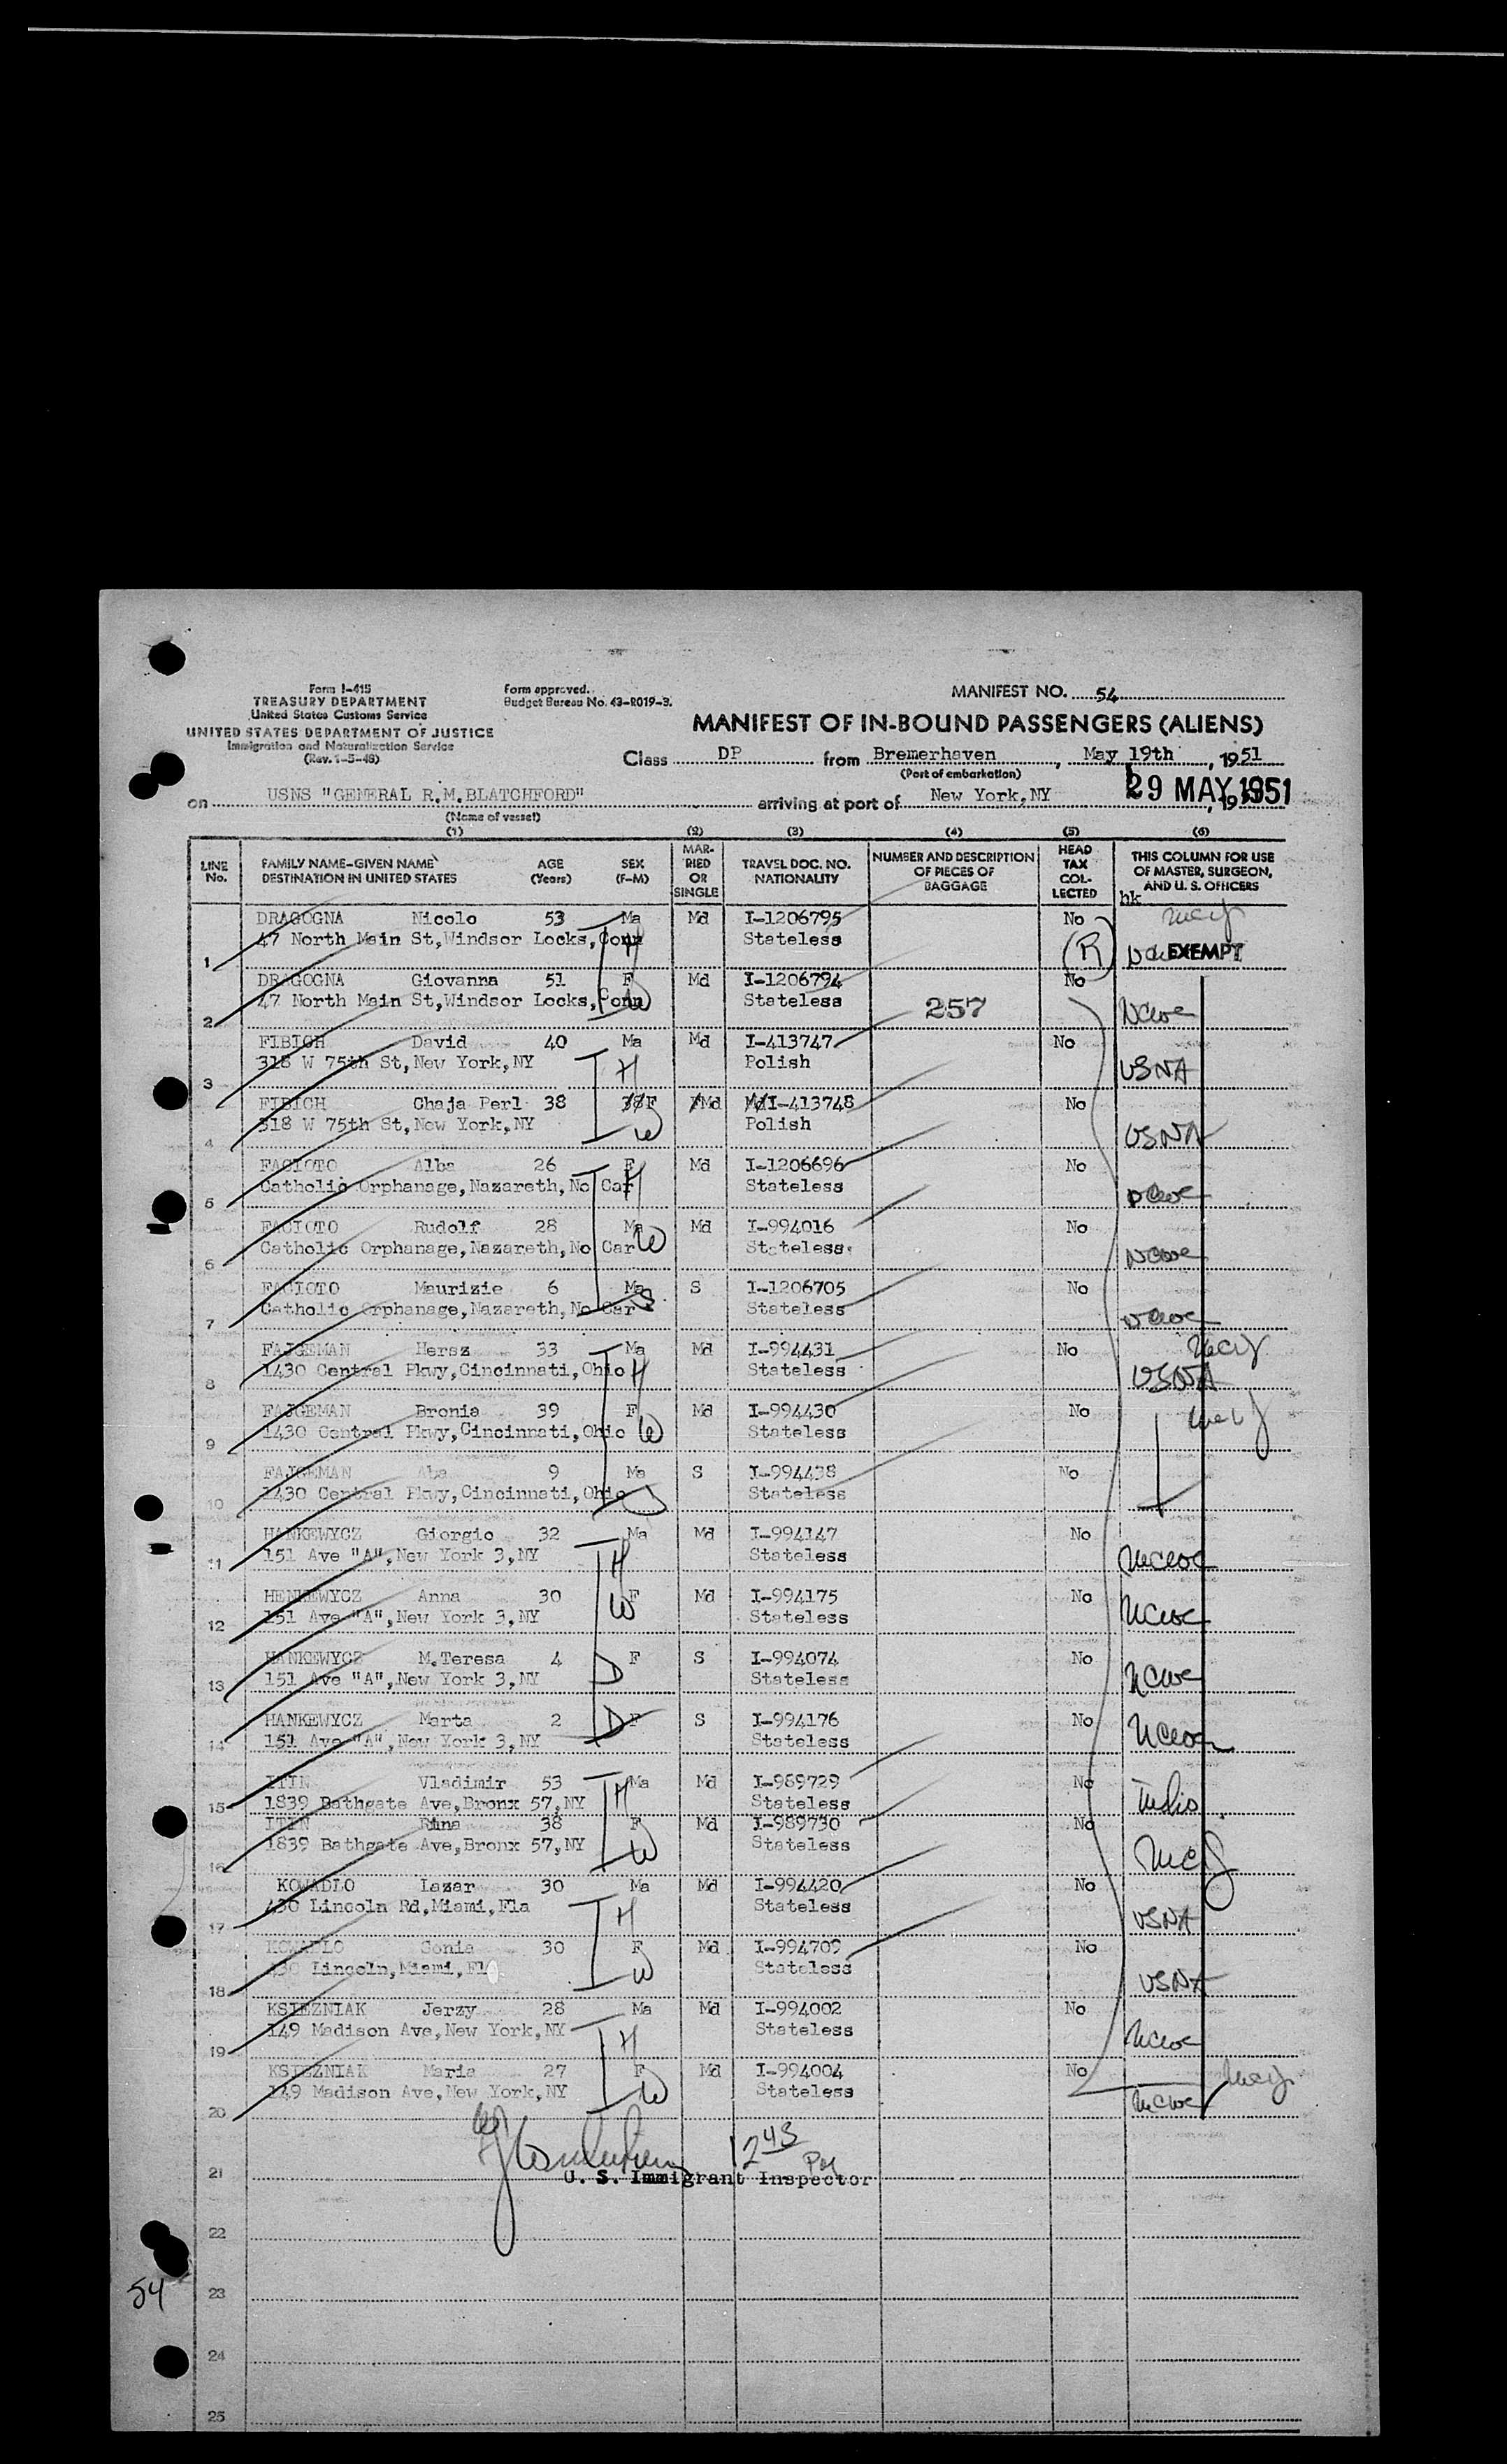 Form I-415
TREASURY DEPARTMENT
United States Customs Service
UNITED STATES DEPARTMENT OF JUSTICE
Immigration and Naturalization Service
(Rev. 1-5-48)
Form approved.
Budget Bureau No. 43-R019-3.
MANIFEST NO. 54
MANIFEST OF IN-BOUND PASSENGERS (ALIENS)
Class DP from Bremerhaven, May 19th, 1951
(Port of embarkation)
on USNS "GENERAL R.M.BLATCHFORD" arriving at port of New York,NY 29 MAY 1951, 19
(Name of vessel)
(1) (2) (3) (4) (5) (6)
LINE No. FAMILY NAME-GIVEN NAME DESTINATION IN UNITED STATES AGE (Years) SEX (F-M) MARRIED OR SINGLE TRAVEL DOC. NO. NATIONALITY NUMBER AND DESCRIPTION OF PIECES OF BAGGAGE HEAD TAX COLLECTED THIS COLUMN FOR USE OF MASTER, SURGEON, AND U. S. OFFICERS
hk
DRAGOGNA Nicolo 53 Ma Md I-1206795 No
1 47 North Main St,Windsor Locks,Conn H Stateless (R) EXEMPT
DRAGOGNA Giovanna 51 F Md I-1206794 No
2 47 North Main St,Windsor Locks,Conn W Stateless 257 NCWC
FIBICH David 40 Ma Md I-413747 No
3 318 W 75th St,New York,NY H Polish USNA
FIBICH Chaja Perl 38 F Md I-413748 No
4 318 W 75th St,New York,NY W Polish USNA
FACIOTO Alba 26 F Md I-1206696 No
5 Catholic Orphanage,Nazareth,No Car H Stateless NCWC
FACIOTO Rudolf 28 Ma Md I-994016 No
6 Catholic Orphanage,Nazareth,No Car W Stateless NCWC
FACIOTO Maurizie 6 Ma S I-1206705 No
7 Catholic Orphanage,Nazareth,No Car S Stateless NCWC
FAJGEMAN Hersz 33 Ma Md I-994431 No
8 1430 Central Pkwy,Cincinnati,Ohio H Stateless USNA
FAJGEMAN Bronia 39 F Md I-994430 No
9 1430 Central Pkwy,Cincinnati,Ohio W Stateless
FAJGEMAN Aba 9 Ma S I-994438 No
10 1430 Central Pkwy,Cincinnati,Ohio Stateless
HANKEWYCZ Giorgio 32 Ma Md I-994147 No
11 151 Ave "A",New York 3,NY H Stateless NCWC
HENKEWYCZ Anna 30 F Md I-994175 No
12 151 Ave "A",New York 3,NY W Stateless NCWC
HANKEWYCZ M.Teresa 4 F S I-994074 No
13 151 Ave "A",New York 3,NY D Stateless NCWC
HANKEWYCZ Marta 2 F S I-994176 No
14 151 Ave "A",New York 3,NY D Stateless NCWC
ITIN Vladimir 53 Ma Md I-989729 No
15 1839 Bathgate Ave,Bronx 57,NY H Stateless
ITIN Rina 38 F Md I-989730 No
16 1839 Bathgate Ave,Bronx 57,NY W Stateless
KOWADLO Lazar 30 Ma Md I-994420 No
17 430 Lincoln Rd,Miami,Fla H Stateless USNA
KOWADLO Sonia 30 F Md I-994709 No
18 430 Lincoln,Miami,Fl W Stateless USNA
KSIEZNIAK Jerzy 28 Ma Md I-994002 No
19 149 Madison Ave,New York,NY H Stateless NCWC
KSIEZNIAK Maria 27 F Md I-994004 No
20 149 Madison Ave,New York,NY W Stateless NCWC
1243
21 U. S. Immigrant Inspector
22
54
23
24
25